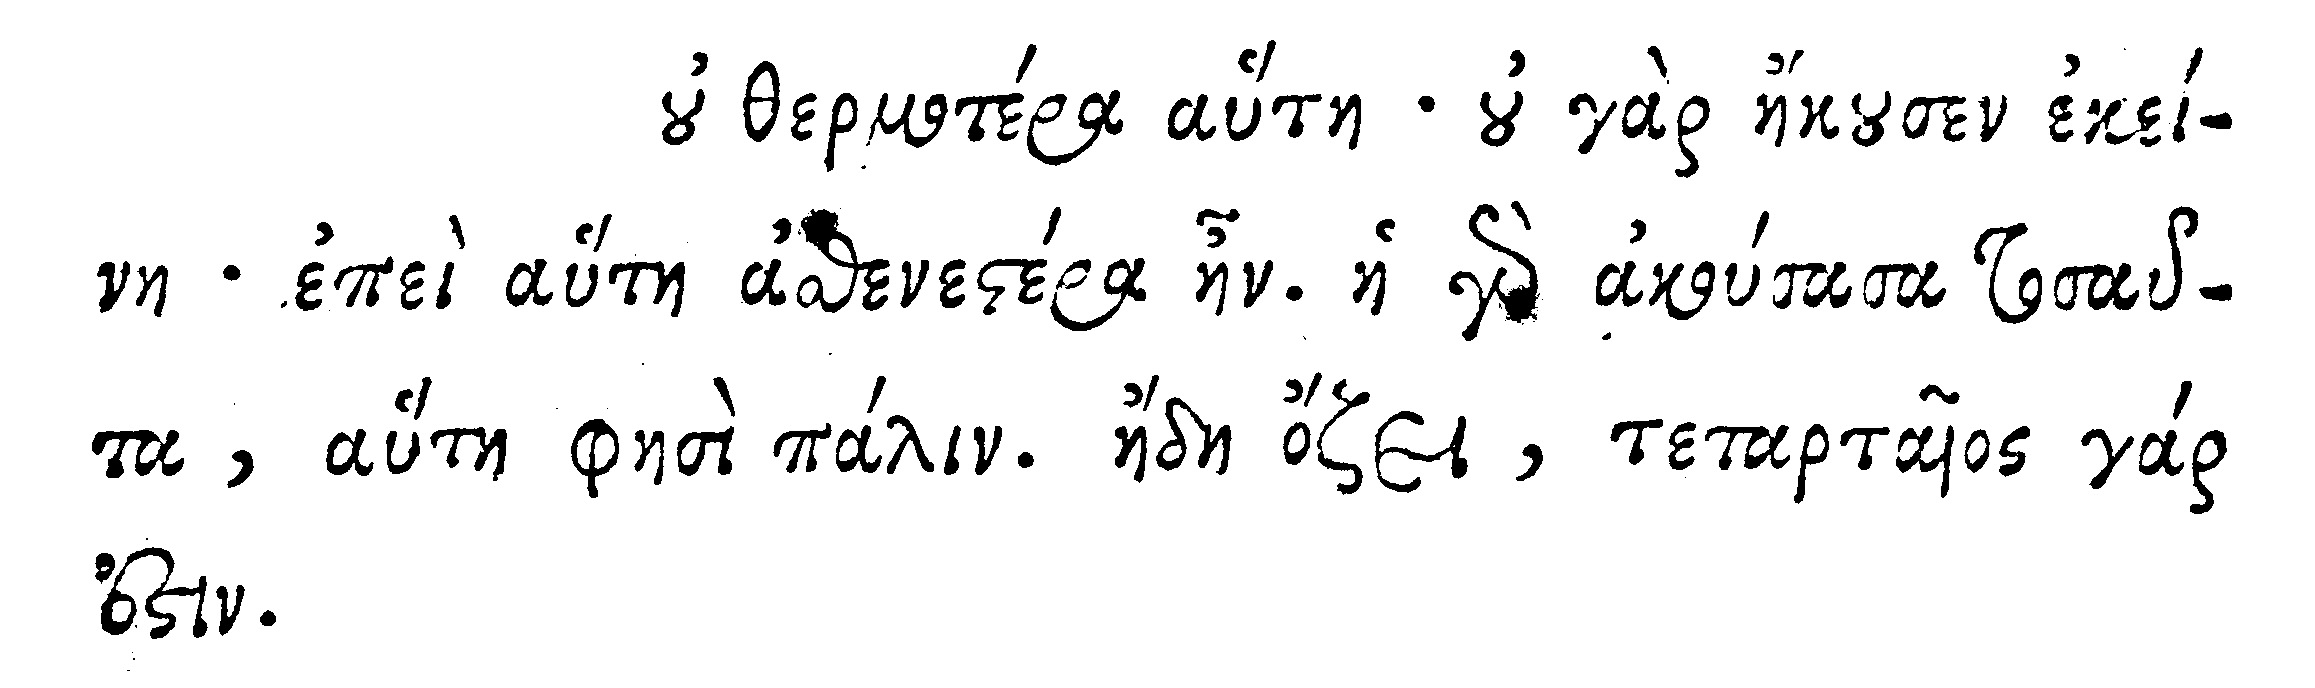 οὐ θερμοτέρα αὕτη · οὐ γὰρ ἤκουσεν ἐκεί-
νη · ἐπεὶ αὕτη ἀσθενεστέρα ἦν. ἡ γὰρ ἀκούσασα τοσαῦ-
τα, αὕτη φησὶ πάλιν. ἤδη ὄζει, τεταρταῖος γάρ
ἐστιν.